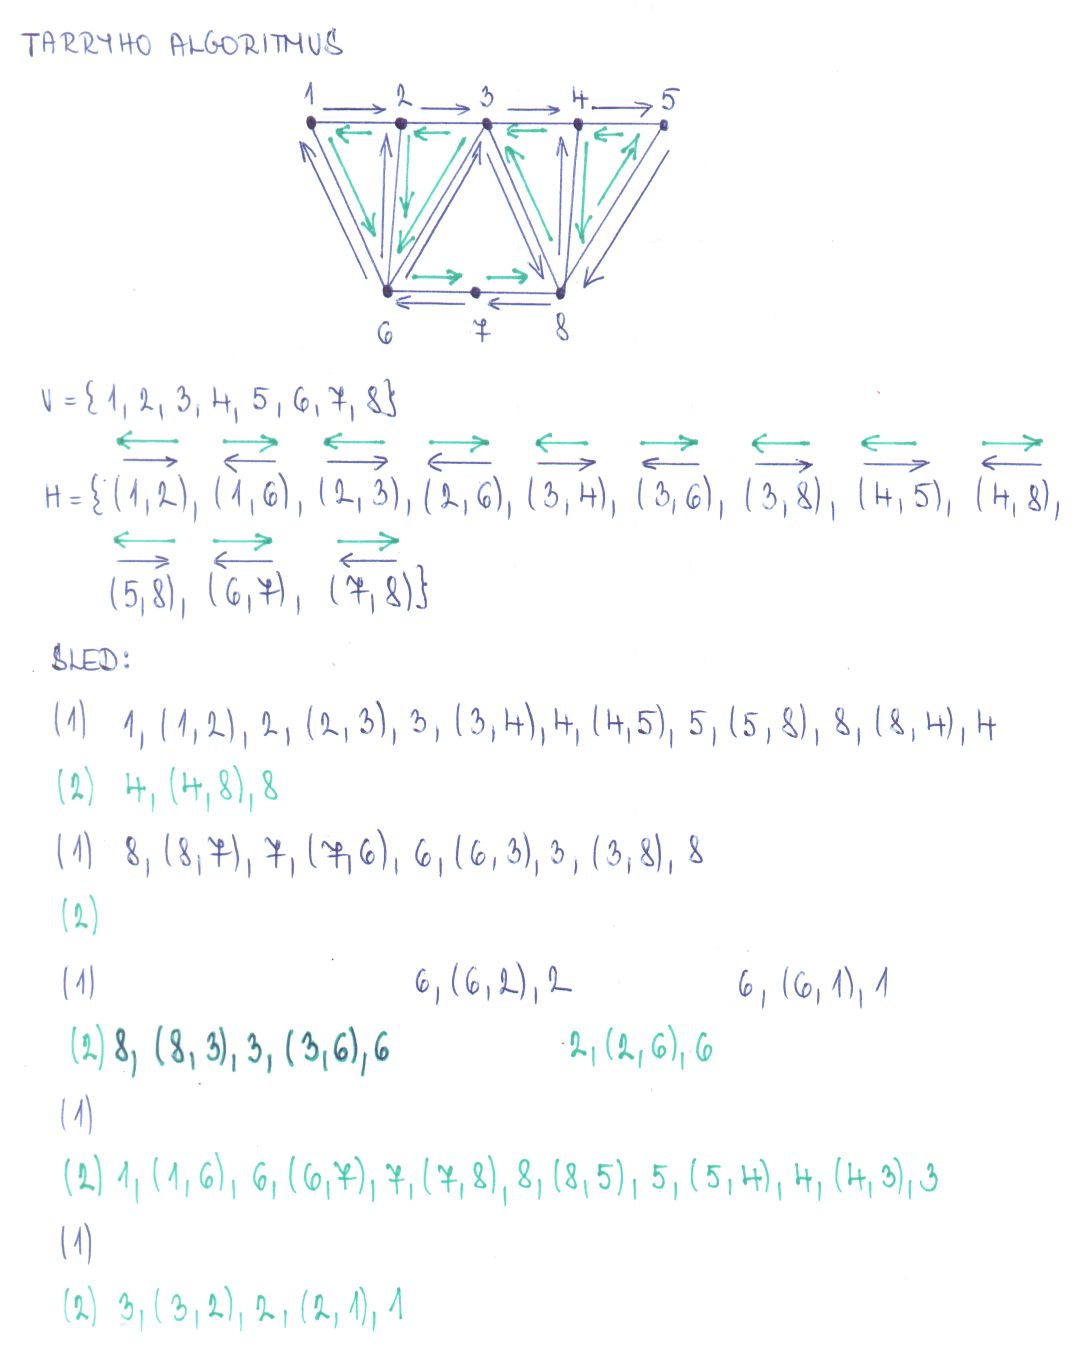 TARRYHO ALGORITMUS
1 2 3 4 5
6 7 8
V = {1, 2, 3, 4, 5, 6, 7, 8}
H = {(1,2), (1,6), (2,3), (2,6), (3,4), (3,6), (3,8), (4,5), (4,8),
(5,8), (6,7), (7,8)}
SLED:
(1) 1, (1,2), 2, (2,3), 3, (3,4), 4, (4,5), 5, (5,8), 8, (8,4), 4
(2) 4, (4,8), 8
(1) 8, (8,7), 7, (7,6), 6, (6,3), 3, (3,8), 8
(2)
(1) 6, (6,2), 2 6, (6,1), 1
(2) 8, (8,3), 3, (3,6), 6 2, (2,6), 6
(1)
(2) 1, (1,6), 6, (6,7), 7, (7,8), 8, (8,5), 5, (5,4), 4, (4,3), 3
(1)
(2) 3, (3,2), 2, (2,1), 1